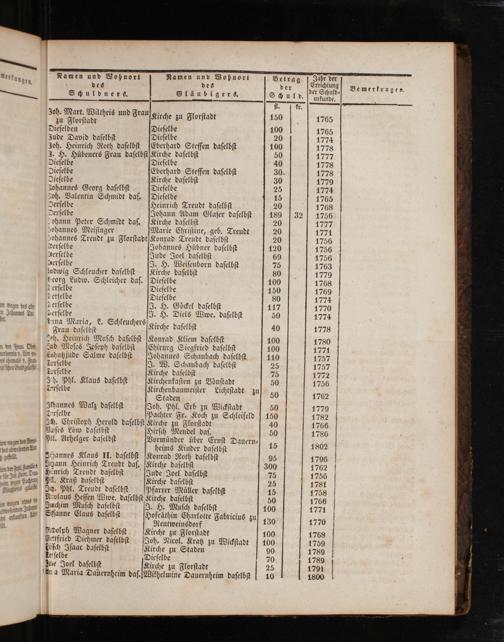 Namen und Wohnort des Schuldners. Namen und Wohnort des Gläubigers. Betrag der Schuld. Jahr der Errichtung der Schuldurkunde. Bemerkungen.
fl. kr.
Joh. Mart. Wiltheis und Frau
zu Florstadt Kirche zu Florstadt 150 1765
Dieselben Dieselbe 100 1765
Jude David daselbst Dieselbe 20 1774
Joh. Heinrich Roth daselbst Eberhard Steffen daselbst 100 1778
J. H. Hübeners Frau daselbst Kirche daselbst 50 1777
Dieselbe Dieselbe 40 1778
Dieselbe Eberhard Steffen daselbst 30 1778
Dieselbe Kirche daselbst 30 1779
Johannes Georg daselbst Dieselbe 25 1774
Joh. Valentin Schmidt das. Dieselbe 15 1765
Derselbe Heinrich Treudt daselbst 20 1768
Derselbe Johann Adam Glaser daselbst 189 32 1756
Johann Peter Schmidt das. Kirche daselbst 20 1777
Johannes Meisinger Marie Christine, geb. Treudt 20 1771
Johannes Treudt zu Florstadt Konrad Treudt daselbst 20 1756
Derselbe Johannes Hübner daselbst 120 1756
Derselbe Jude Joel daselbst 69 1756
Derselbe J. H. Weisenborn daselbst 75 1763
Ludwig Schleucher daselbst Kirche daselbst 80 1779
Georg Ludw. Schleicher das. Dieselbe 100 1768
Derselbe Dieselbe 150 1769
Derselbe Dieselbe 80 1774
Derselbe J. H. Göckel daselbst 117 1770
Derselbe J. H. Diels Wwe. daselbst 50 1774
Anna Maria, L. Schleuchers
Frau daselbst Kirche daselbst 40 1778
Joh. Heinrich Musch daselbst Konrad Kliem daselbst 100 1780
Jud Moses Joseph daselbst Siegfried daselbst 100 1771
Salme daselbst Johannes Schaubach daselbst 110 1757
Derselbe J. W. Schaubach daselbst 25 1757
Derselbe Kirche daselbst 75 1772
Joh. Phil. Klaus daselbst Kirchenkasten zu 50 1756
Derselbe Kirchenbaumeister Lichstadt zu
Staden 50 1762
Johannes Walz daselbst Joh. Phil. Erb zu Wickstadt 50 1779
Derselbe Pachter Fr. Koch zu Schleifeld 150 1782
Joh. Christoph Herold daselbst Kirche zu Florstadt 40 1766
Moses Löw daselbst Hirsch Mendel das. 50 1786
daselbst Vormünder über Ernst Dauernheims
Kinder daselbst 15 1802
Johannes Klaus II. daselbst Konrad Roth daselbst 95 1796
Johann Heinrich Treudt das. Kirche daselbst 300 1762
Heinrich Treudt daselbst Jude Joel daselbst 75 1756
Kraft daselbst Kirche daselbst 25 1781
Phil. Treudt daselbst Pfarrer Müller daselbst 15 1758
Nikolaus Heffen Wwe. daselbst Kirche daselbst 50 1766
Joachim Musch daselbst J. H. Musch daselbst 100 1771
Claus daselbst Hofräthin Charlotte Fabricius zu
130 1770
Rudolph Wagner daselbst Kirche zu Florstadt 100 1768
Gottfried Diehmer daselbst Joh. Nicol. Kratz zu Wickstadt 100 1759
Hirsch Isaac daselbst Kirche zu Staden 90 1789
Derselbe Dieselbe 70 1789
Jude Joel daselbst Kirche zu Florstadt 25 1791
Anna Maria Dauernheim das. Wilhelmine Dauernheim daselbst 10 1800